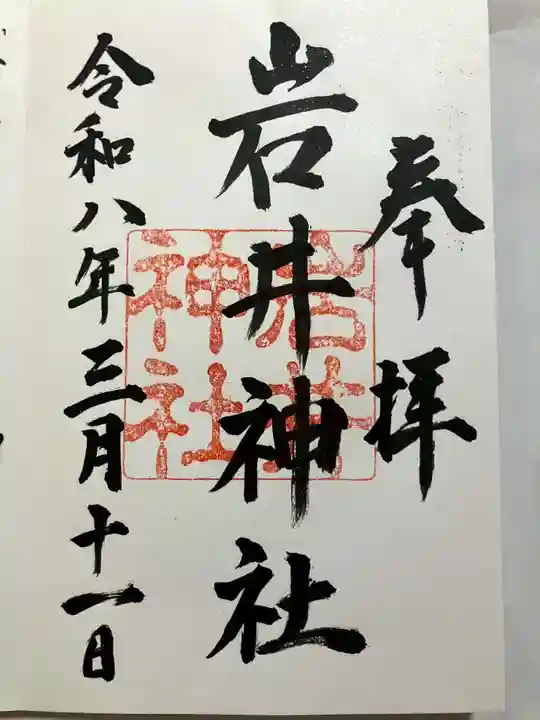 奉拝
岩井神社
岩井
神社
令和八年三月十一日